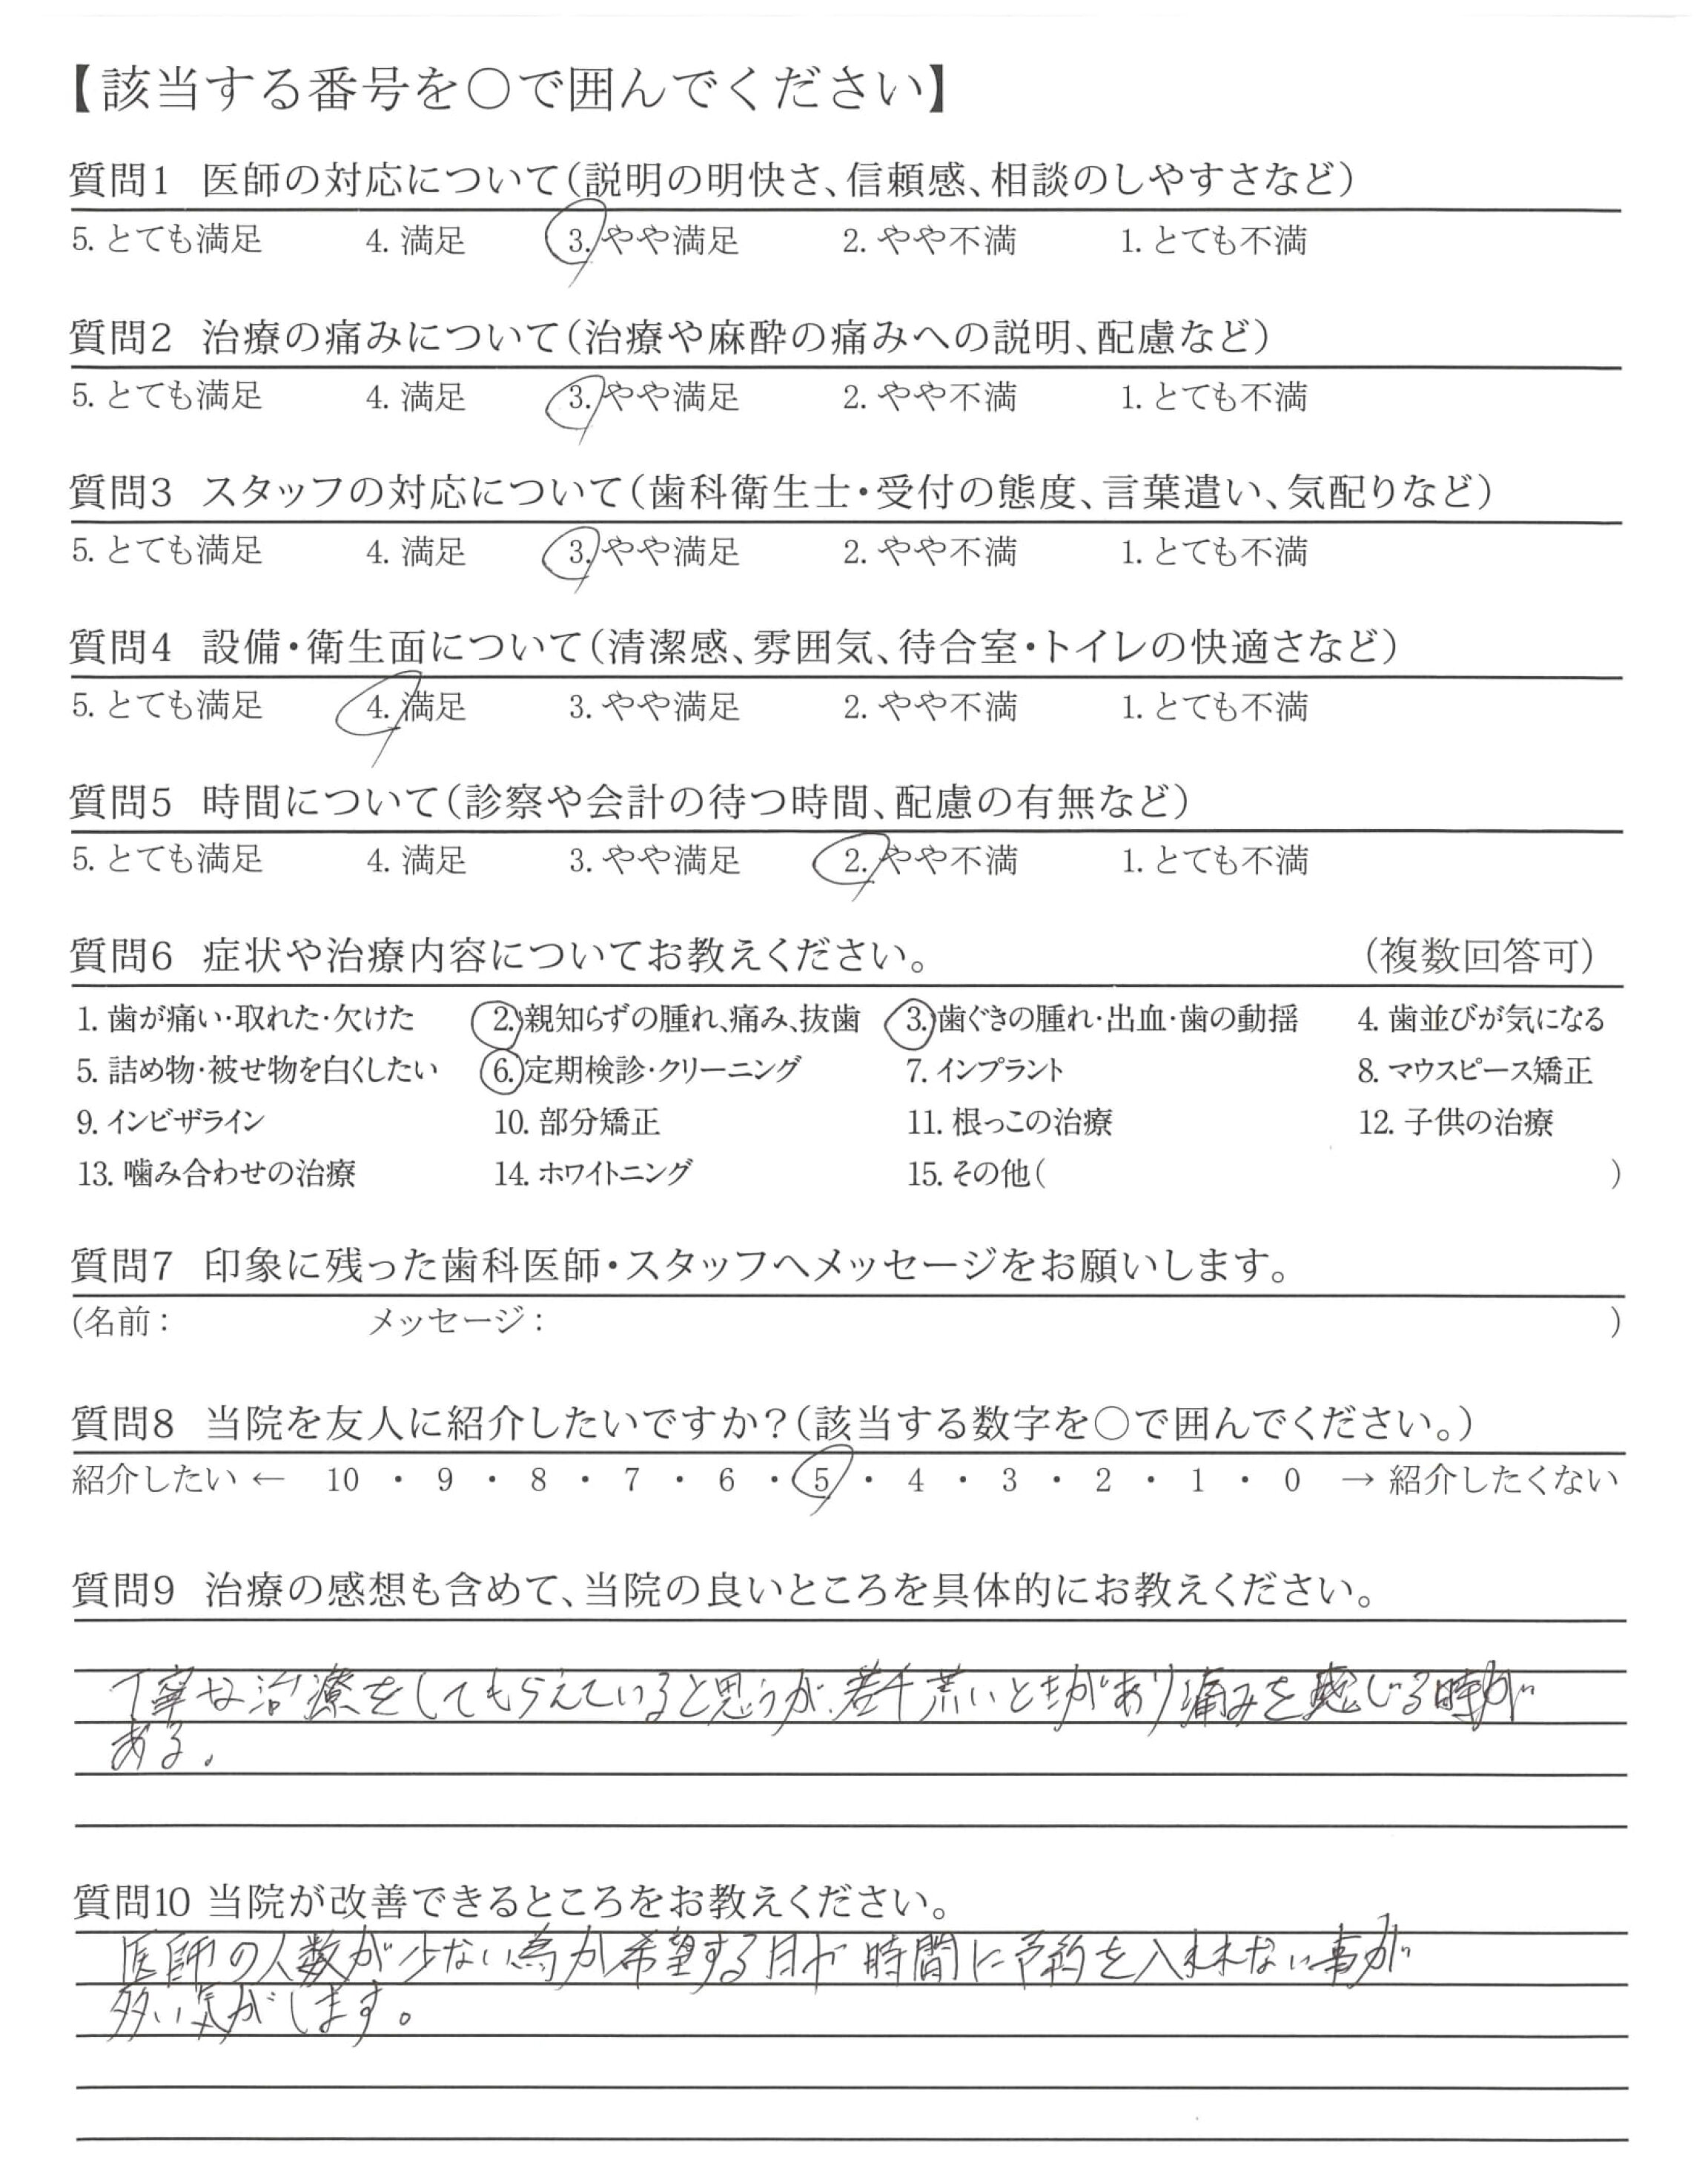 【該当する番号を○で囲んでください】
質問1 医師の対応について(説明の明快さ、信頼感、相談のしやすさなど)
5. とても満足 4. 満足 3. やや満足 2. やや不満 1. とても不満
質問2 治療の痛みについて(治療や麻酔の痛みへの説明、配慮など)
5. とても満足 4. 満足 3. やや満足 2. やや不満 1. とても不満
質問3 スタッフの対応について(歯科衛生士・受付の態度、言葉遣い、気配りなど)
5. とても満足 4. 満足 3. やや満足 2. やや不満 1. とても不満
質問4 設備・衛生面について(清潔感、雰囲気、待合室・トイレの快適さなど)
5. とても満足 4. 満足 3. やや満足 2. やや不満 1. とても不満
質問5 時間について(診察や会計の待つ時間、配慮の有無など)
5. とても満足 4. 満足 3. やや満足 2. やや不満 1. とても不満
質問6 症状や治療内容についてお教えください。 (複数回答可)
1. 歯が痛い・取れた・欠けた 2. 親知らずの腫れ、痛み、抜歯 3. 歯ぐきの腫れ・出血・歯の動揺 4. 歯並びが気になる
5. 詰め物・被せ物を白くしたい 6. 定期検診・クリーニング 7. インプラント 8. マウスピース矯正
9. インビザライン 10. 部分矯正 11. 根っこの治療 12. 子供の治療
13. 噛み合わせの治療 14. ホワイトニング 15. その他( )
質問7 印象に残った歯科医師・スタッフへメッセージをお願いします。
(名前: メッセージ: )
質問8 当院を友人に紹介したいですか?(該当する数字を○で囲んでください。)
紹介したい ← 10 ・ 9 ・ 8 ・ 7 ・ 6 ・ 5 ・ 4 ・ 3 ・ 2 ・ 1 ・ 0 → 紹介したくない
質問9 治療の感想も含めて、当院の良いところを具体的にお教えください。
丁寧な治療をしてもらえていると思うが、若干荒いときがあり痛みを感じる時が
ある。
質問10 当院が改善できるところをお教えください。
医師の人数が少ない為か希望する日や時間に予約を入れれない事が
多い気がします。